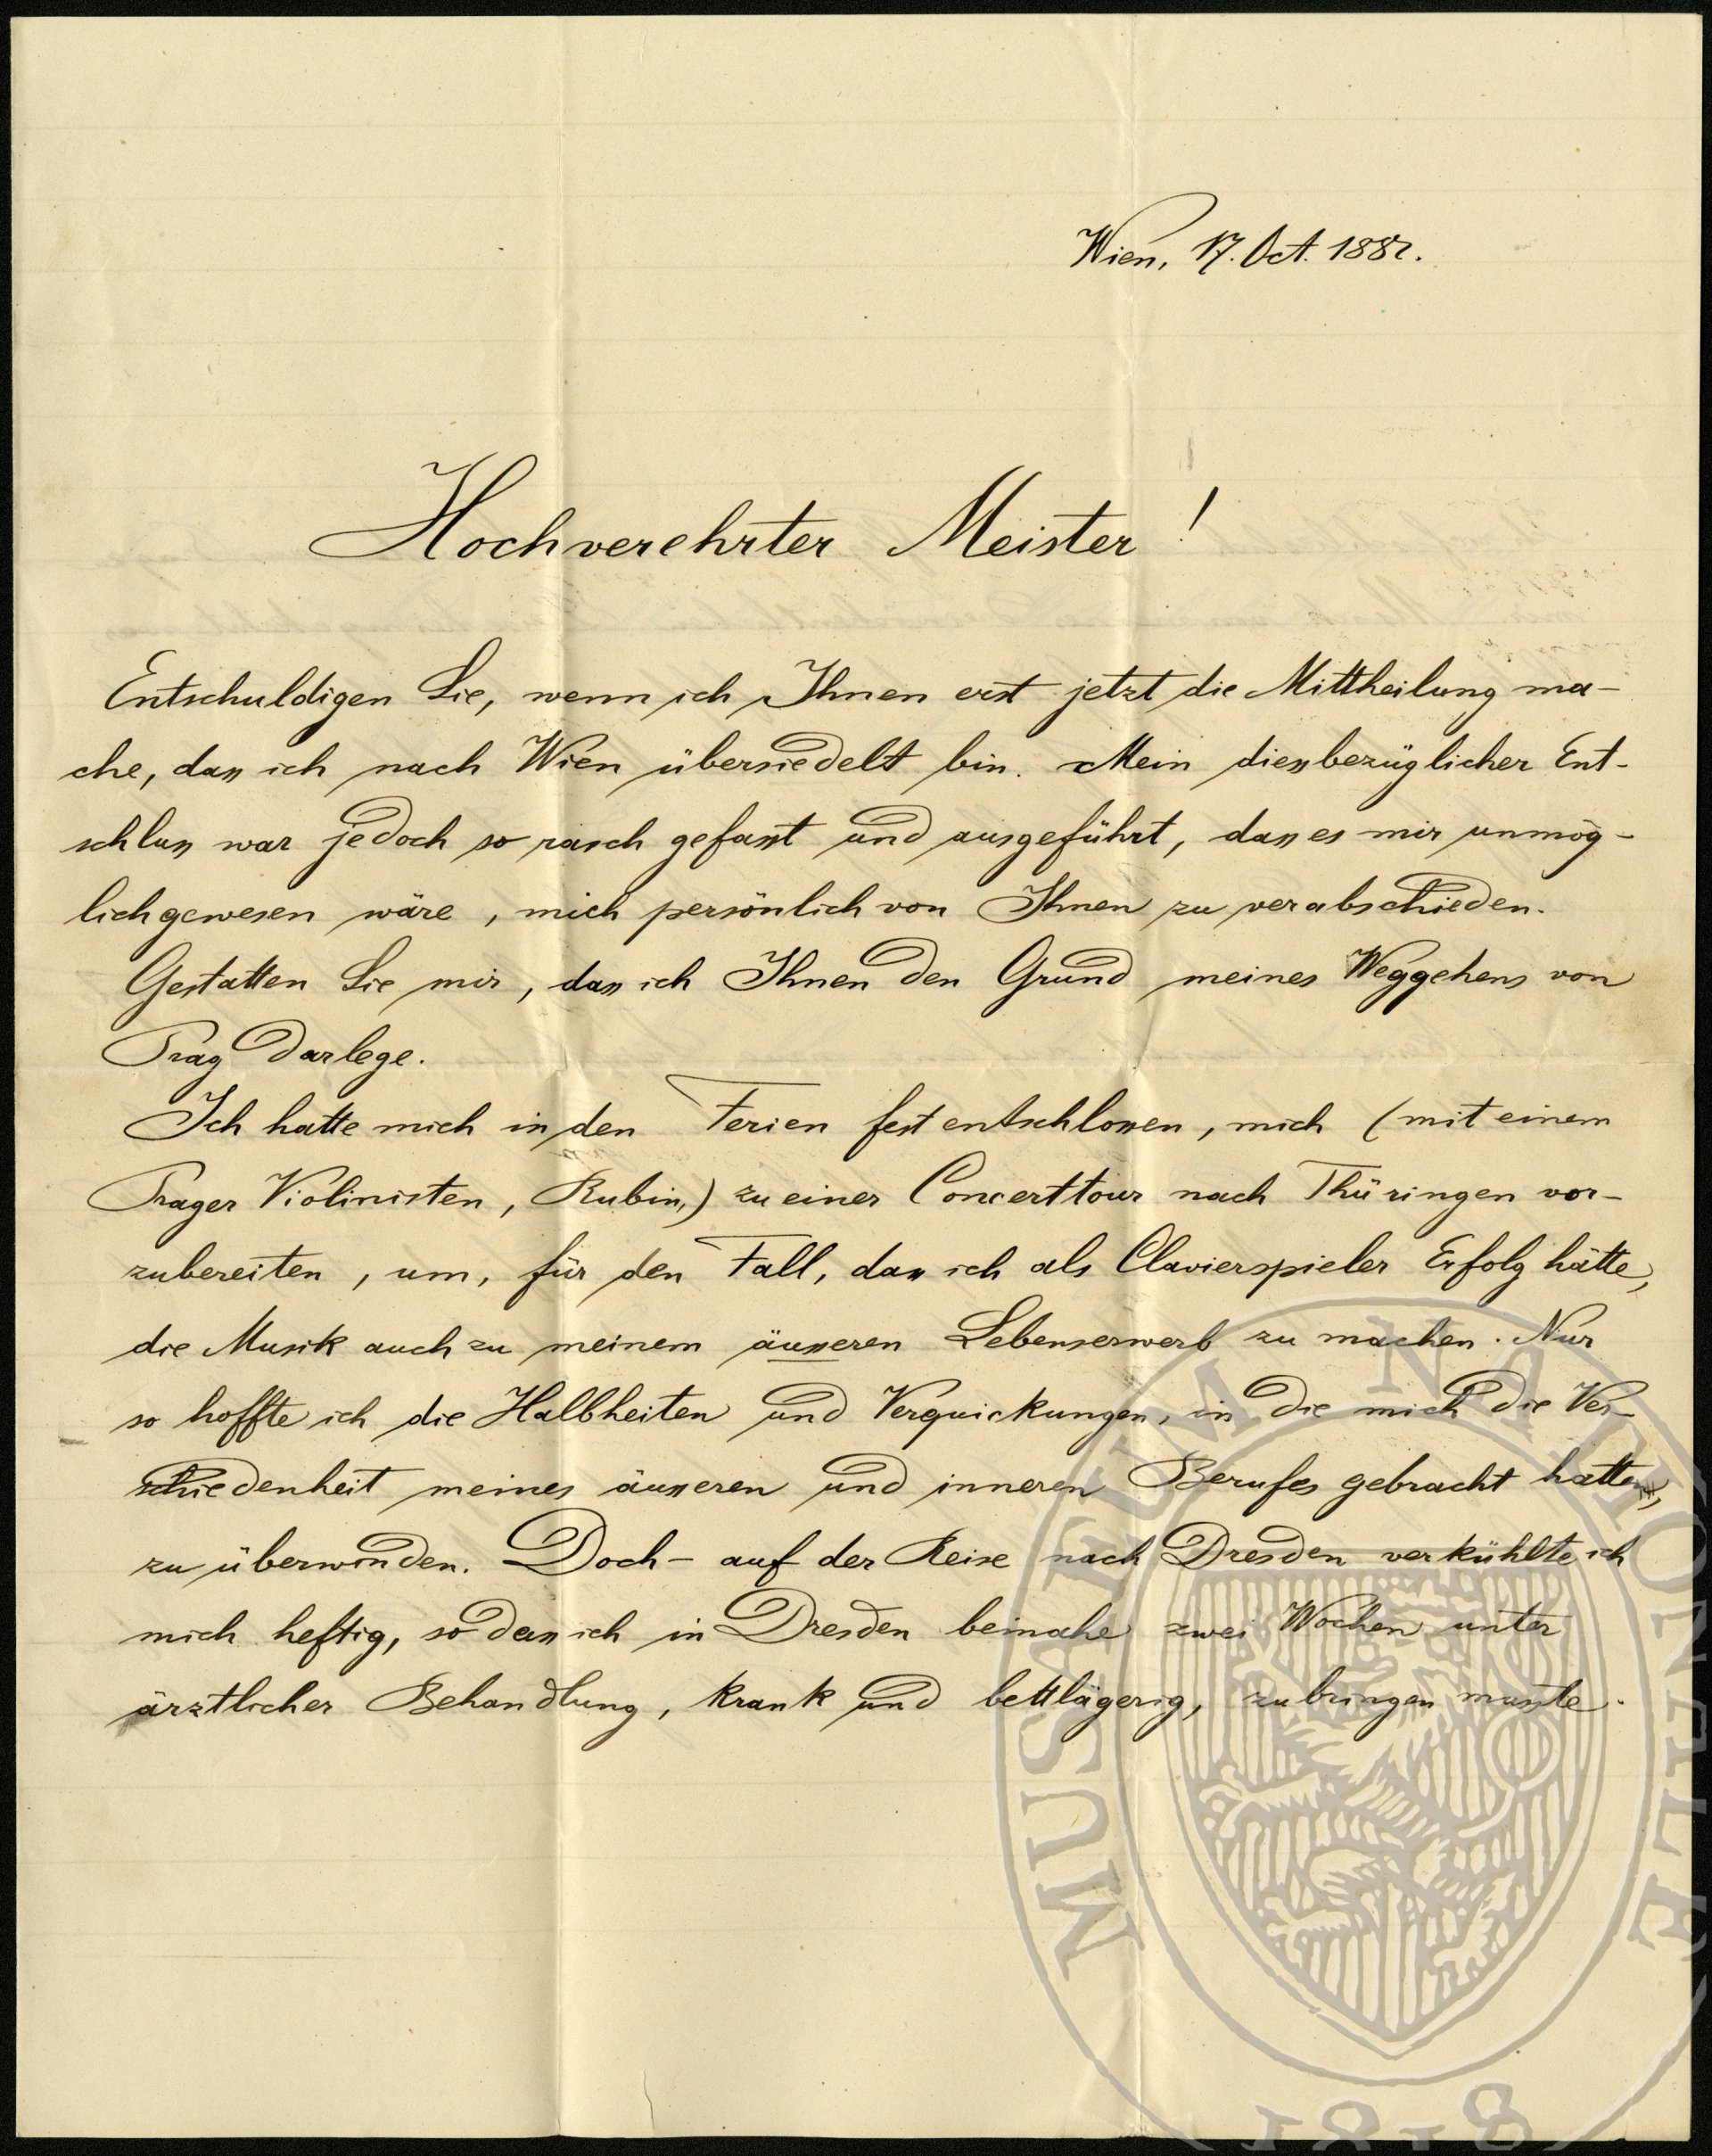 Wien, 17. Oct. 1882.
Hochverehrter Meister!
Entschuldigen Sie, wenn ich Ihnen erst jetzt die Mittheilung ma-
che, dass ich nach Wien übersiedelt bin. Mein diessbezüglicher Ent-
schluss war jedoch so rasch gefasst und ausgeführt, dass es mir unmög-
lich gewesen wäre, mich persönlich von Ihnen zu verabschieden.
Gestatten Sie mir, dass ich Ihnen den Grund meines Weggehens von
Prag darlege.
Ich hatte mich in den Ferien fest entschlossen, mich (mit einem
Prager Violinisten, Rubin,) zu einer Concerttour nach Thüringen vor-
zubereiten, um, für den Fall, dass ich als Clavierspieler Erfolg hätte,
die Musik auch zu meinem äusseren Lebenserwerb zu machen. Nur
so hoffte ich die Halbheiten und Verquickungen, in die mich die Ver-
schiedenheit meines äusseren und inneren Berufes gebracht hatte,
zu überwinden. Doch – auf der Reise nach Dresden verkühlte ich
mich heftig, so dass ich in Dresden beinahe zwei Wochen unter
ärztlicher Behandlung, krank und bettlägerig, zubringen musste.
MUSAEUM NATIONALE
1818